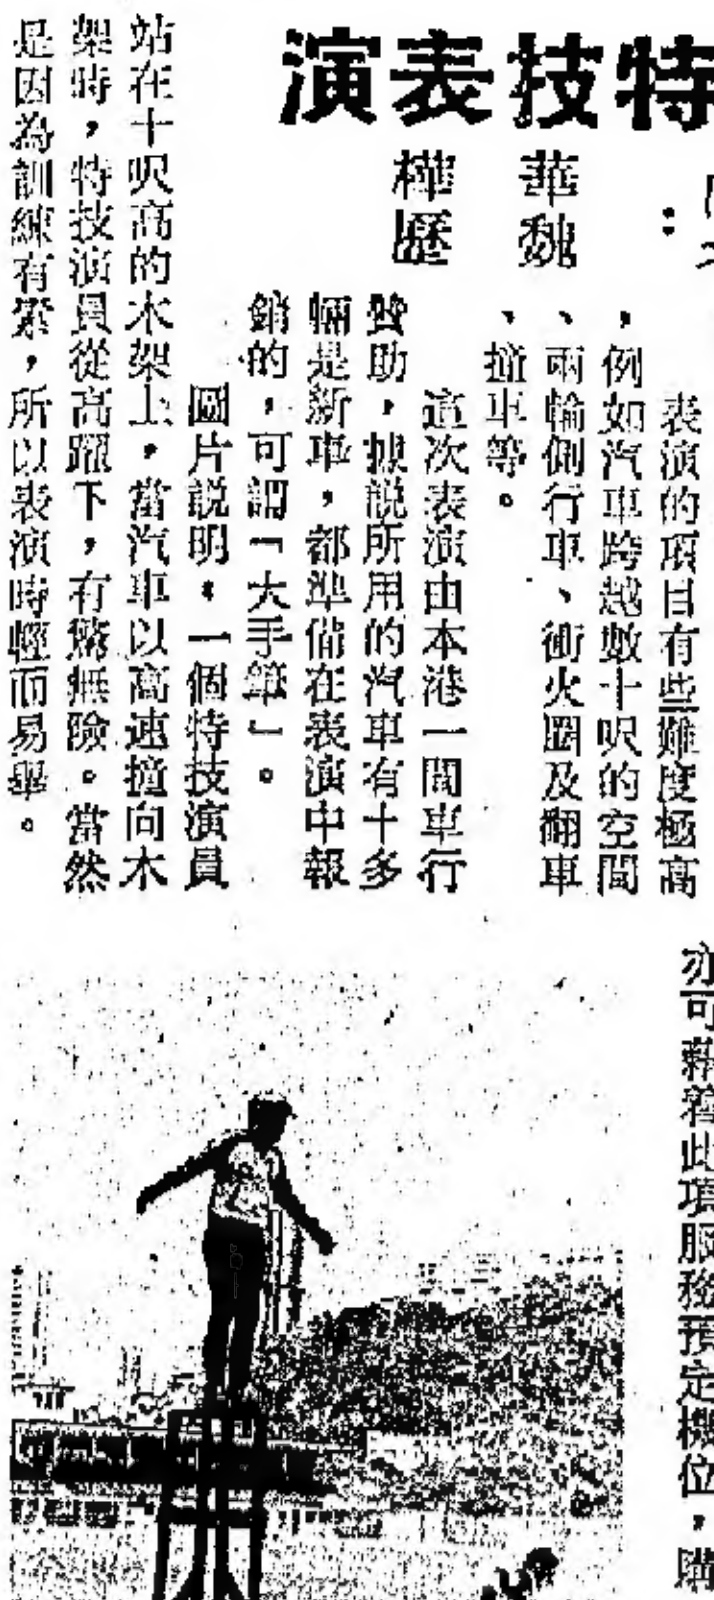 特技表演
華魏
樺歷
表演的項目有些難度極高
，例如汽車跨越數十呎的空間
、兩輪側行車、衝火圈及翻車
、撞車等。
這次表演由本港一間車行
贊助，據說所用的汽車有十多
輛是新車，都準備在表演中報
銷的，可謂「大手筆」。
圖片說明：一個特技演員
站在十呎高的木架上，當汽車以高速撞向木
架時，特技演員從高躍下，有驚無險。當然
是因為訓練有素，所以表演時輕而易舉。
亦可藉着此項服務預定機位，購